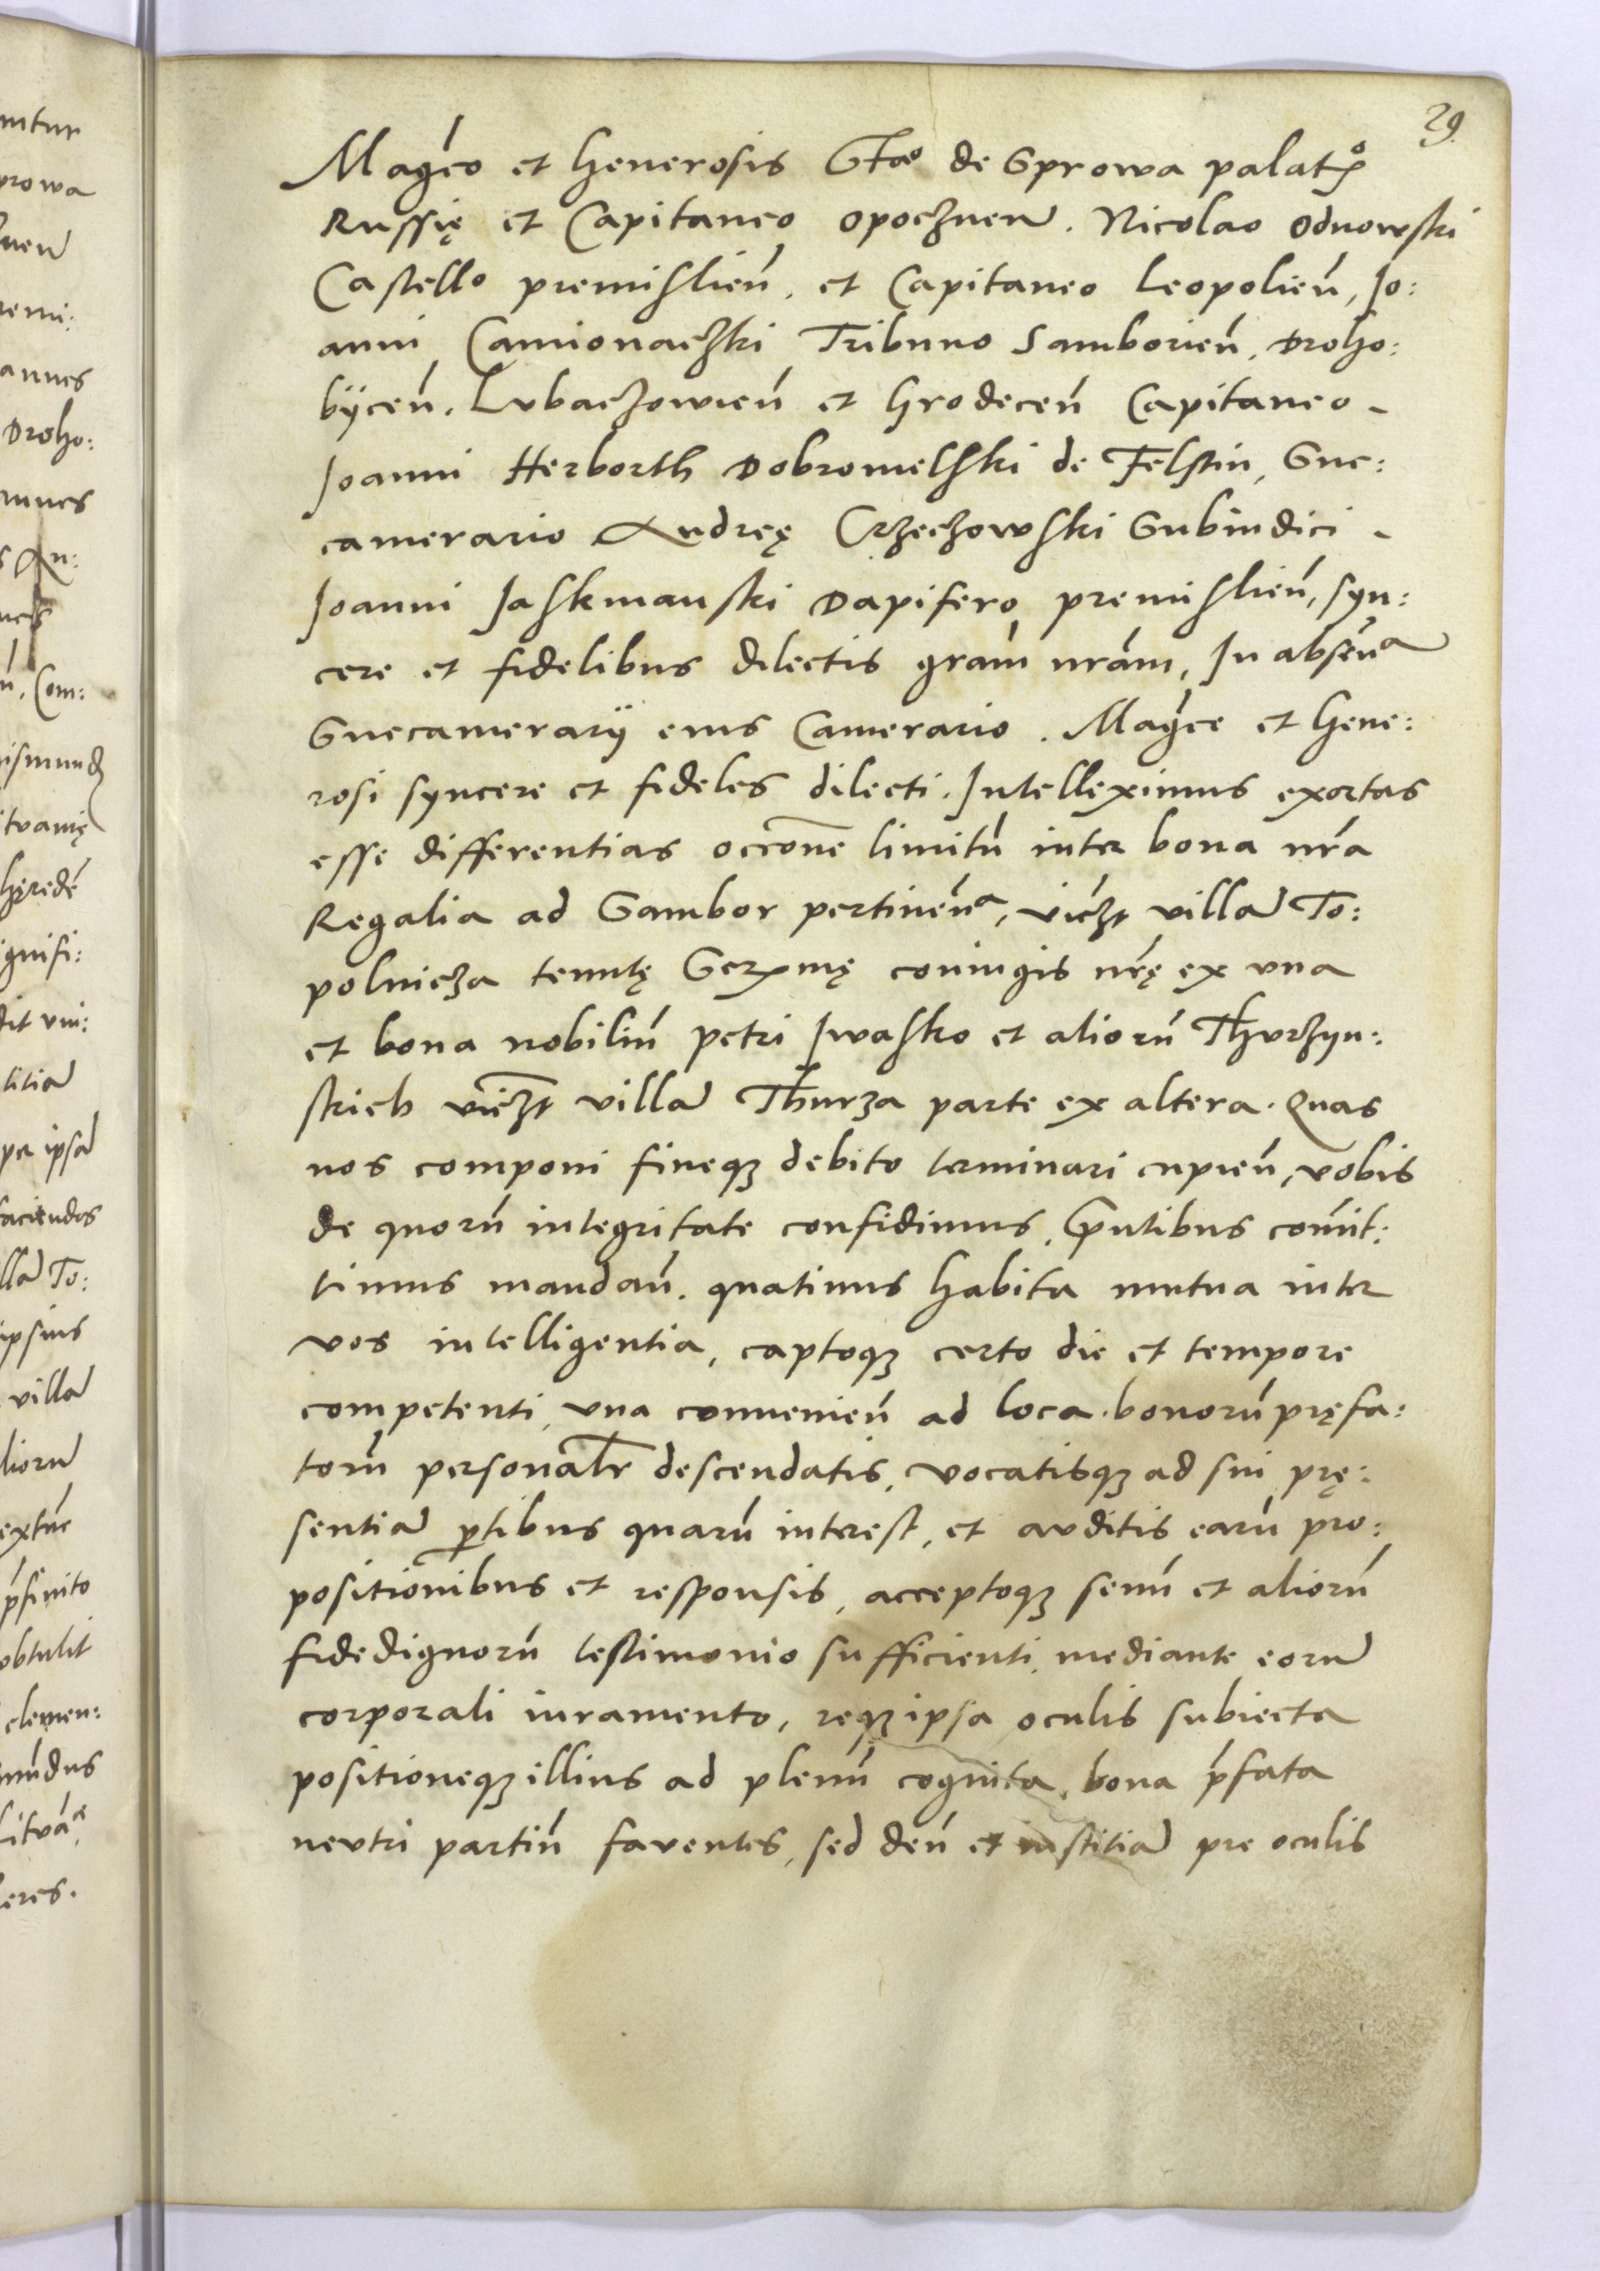 29.
Magco et Generosis Stao de Sprowa palatino
Russię et Capitaneo Opocznen. Nicolao Odnowski
Castello premislien, et Capitaneo Leopolien, Jo:
anni Camionaczki Tribuno Samborien, Droho:
bÿcen, Lubaczowien et Grodecen Capitaneo -
Joanni Herborth Dobromelski de Felstin, Suc:
camerario Andreę Orzechowski Subiudici -
Joanni Jaskmanski Dapifero premislien, syn:
cere et fidelibus dilectis gram nram, In absena
Succamerarÿ eius Camerario. Magce et Gene:
rosi syncere et fideles dilecti. Intelleximus exortas
esse differentias occone limitu inter bona nra
Regalia ad Sambor pertinena, viczt villa To:
polnicza tenutę Serme coniugis nrę ex una
et bona nobiliu Petri Iwasko et alioru Thurzyn:
skich viczt villa Thurza parte ex altera. Quas
nos componi fineqz debito terminari cupien, vobis
de quoru integritate confidimus, pntibus comit:
timus mandan. quatinus habita mutua inter
vos intelligentia, captoqz certo die et tempore
competenti, una convenien ad loca bonoru pręfa:
toru personalr descendatis, vocatisqz ad sui prę:
sentia ptibus quaru interest, et auditis earu pro:
positionibus et responsis, acceptoqz senu et alioru
fidedignoru testimonio sufficienti, mediante eoru
corporali iuramento, reqz ipsa oculis subiecta
positioneqz illius ad plenu cognita, bona pfata
neutri partiu faventes, sed deu et iustitia pre oculis